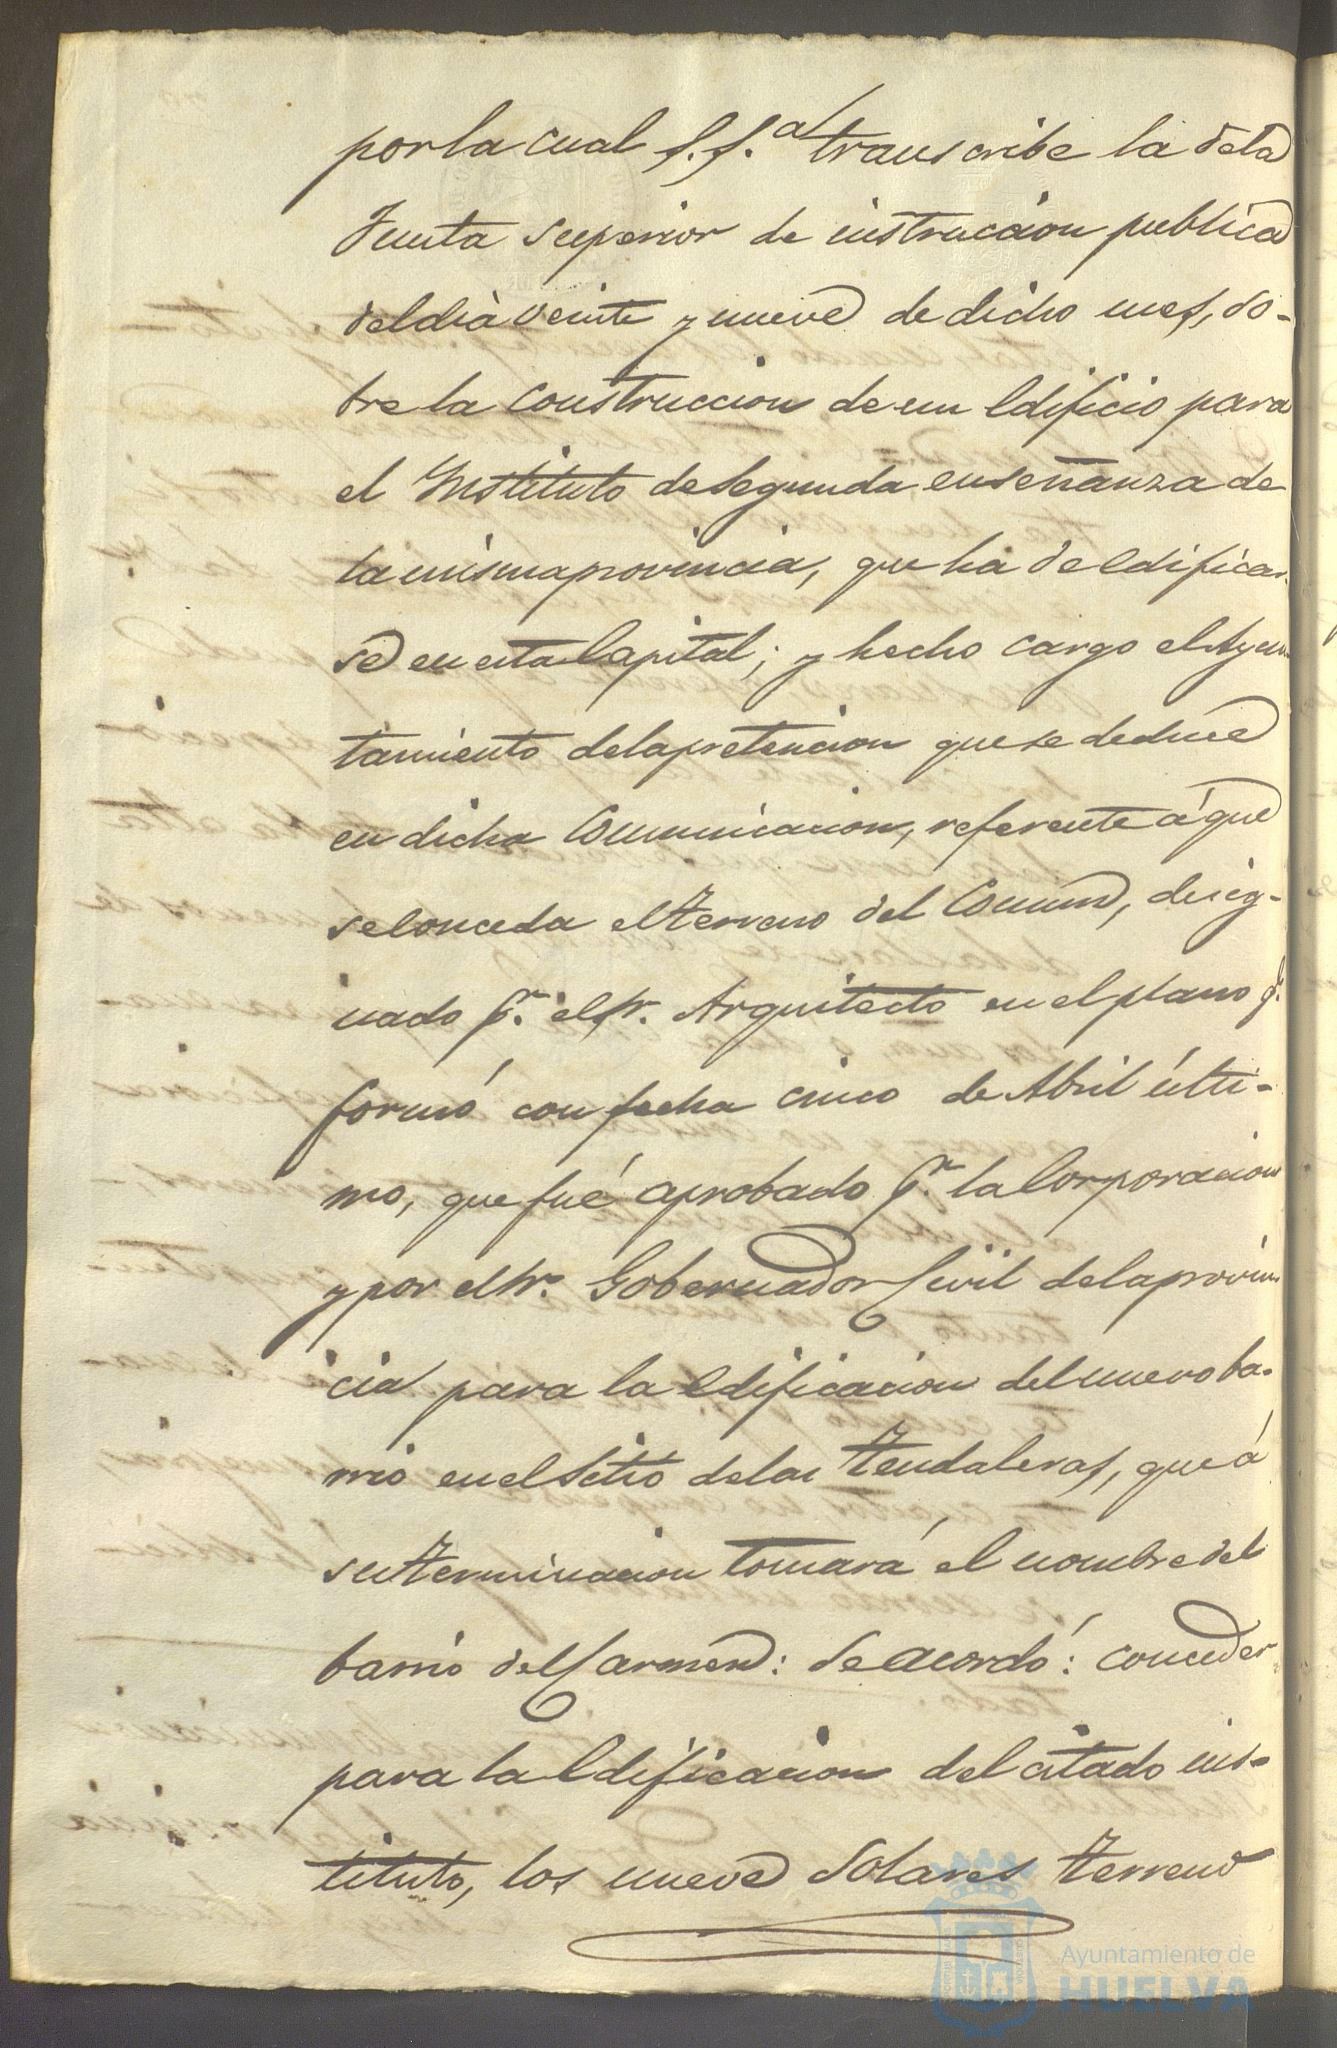 por la cual S.S.ª transcribe la de la
Junta superior de instruccion publica
del dia veinte y nueve de dicho mes, so-
bre la construccion de un Edificio para
el Instituto de Segunda enseñanza de
la misma provincia, que ha de Edificar-
se en esta Capital; y hecho cargo el Ayun-
tamiento de la pretencion que se deduce
en dicha Comunicacion, referente á que
se Conceda el terreno del Comun, desig-
nado p.r el Sr. Arquitecto en el plano q.e
formó con fecha cinco de Abril últi-
mo, que fué aprobado p.r la Corporacion
y por el Sr. Gobernador Civil de la provin-
cia para la Edificacion del nuevo ba-
rrio en el Sitio de las Tendaleras, que á
su terminacion tomará el nombre del
barrio del Carmen: Se acordó: conceder
para la Edificacion del citado ins-
tituto, los nueve Solares terreno
Ayuntamiento de
HUELVA